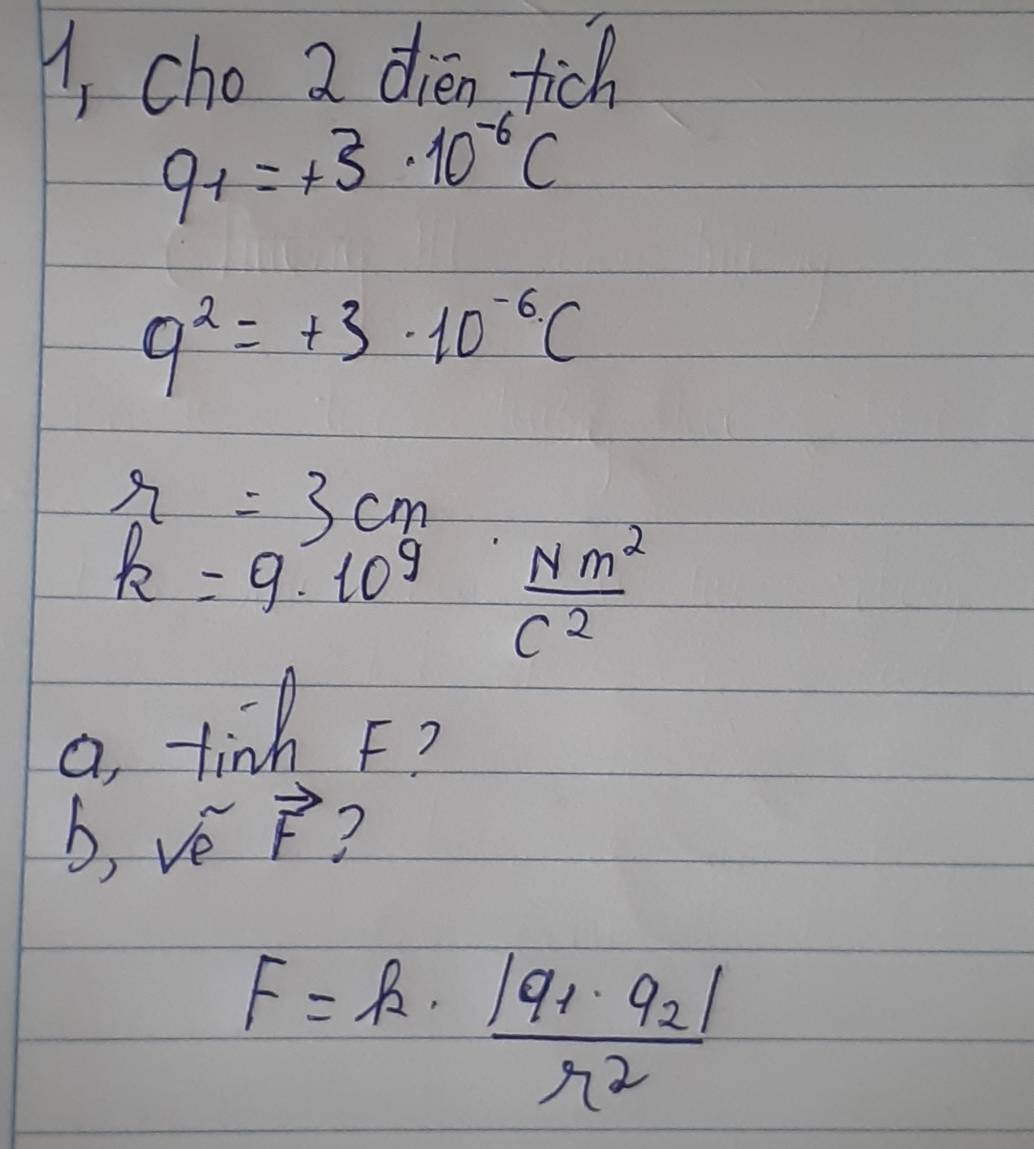 1, Cho 2 điên tích
q₁ = +3 · 10⁻⁶ C
q² = +3 · 10⁻⁶ C
r = 3 cm
k = 9 . 10⁹ · Nm²/C²
a, tính F?
b, vẽ F⃗?
F = k . |q₁ . q₂| / r²